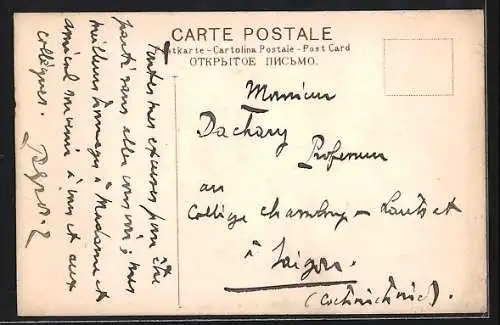 CARTE POSTALE
Postkarte - Cartolina Postale - Post Card
ОТКРЫТОЕ ПИСЬМО.
Toutes mes excuses pour être
parti sans aller vous voir; mes
meilleurs hommages à Madame et
amical souvenir à vous et aux
collègues.
Monsieur
Dachary
Professeur
au
Collège Chasseloup-Laubat
à Saigon.
(Cochinchine).